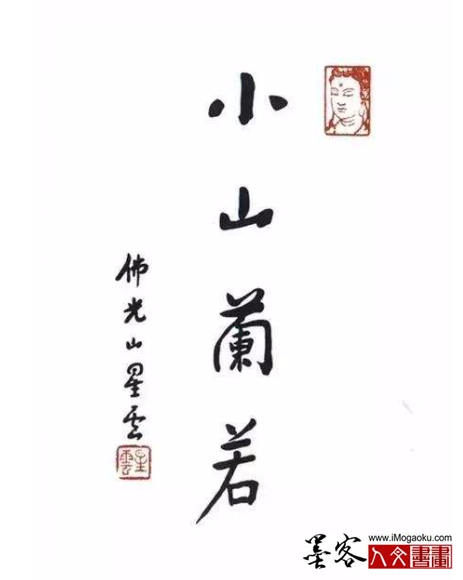 小山蘭若
佛光山星雲
星雲
www.iMogaoku.com
墨客
人文書畫